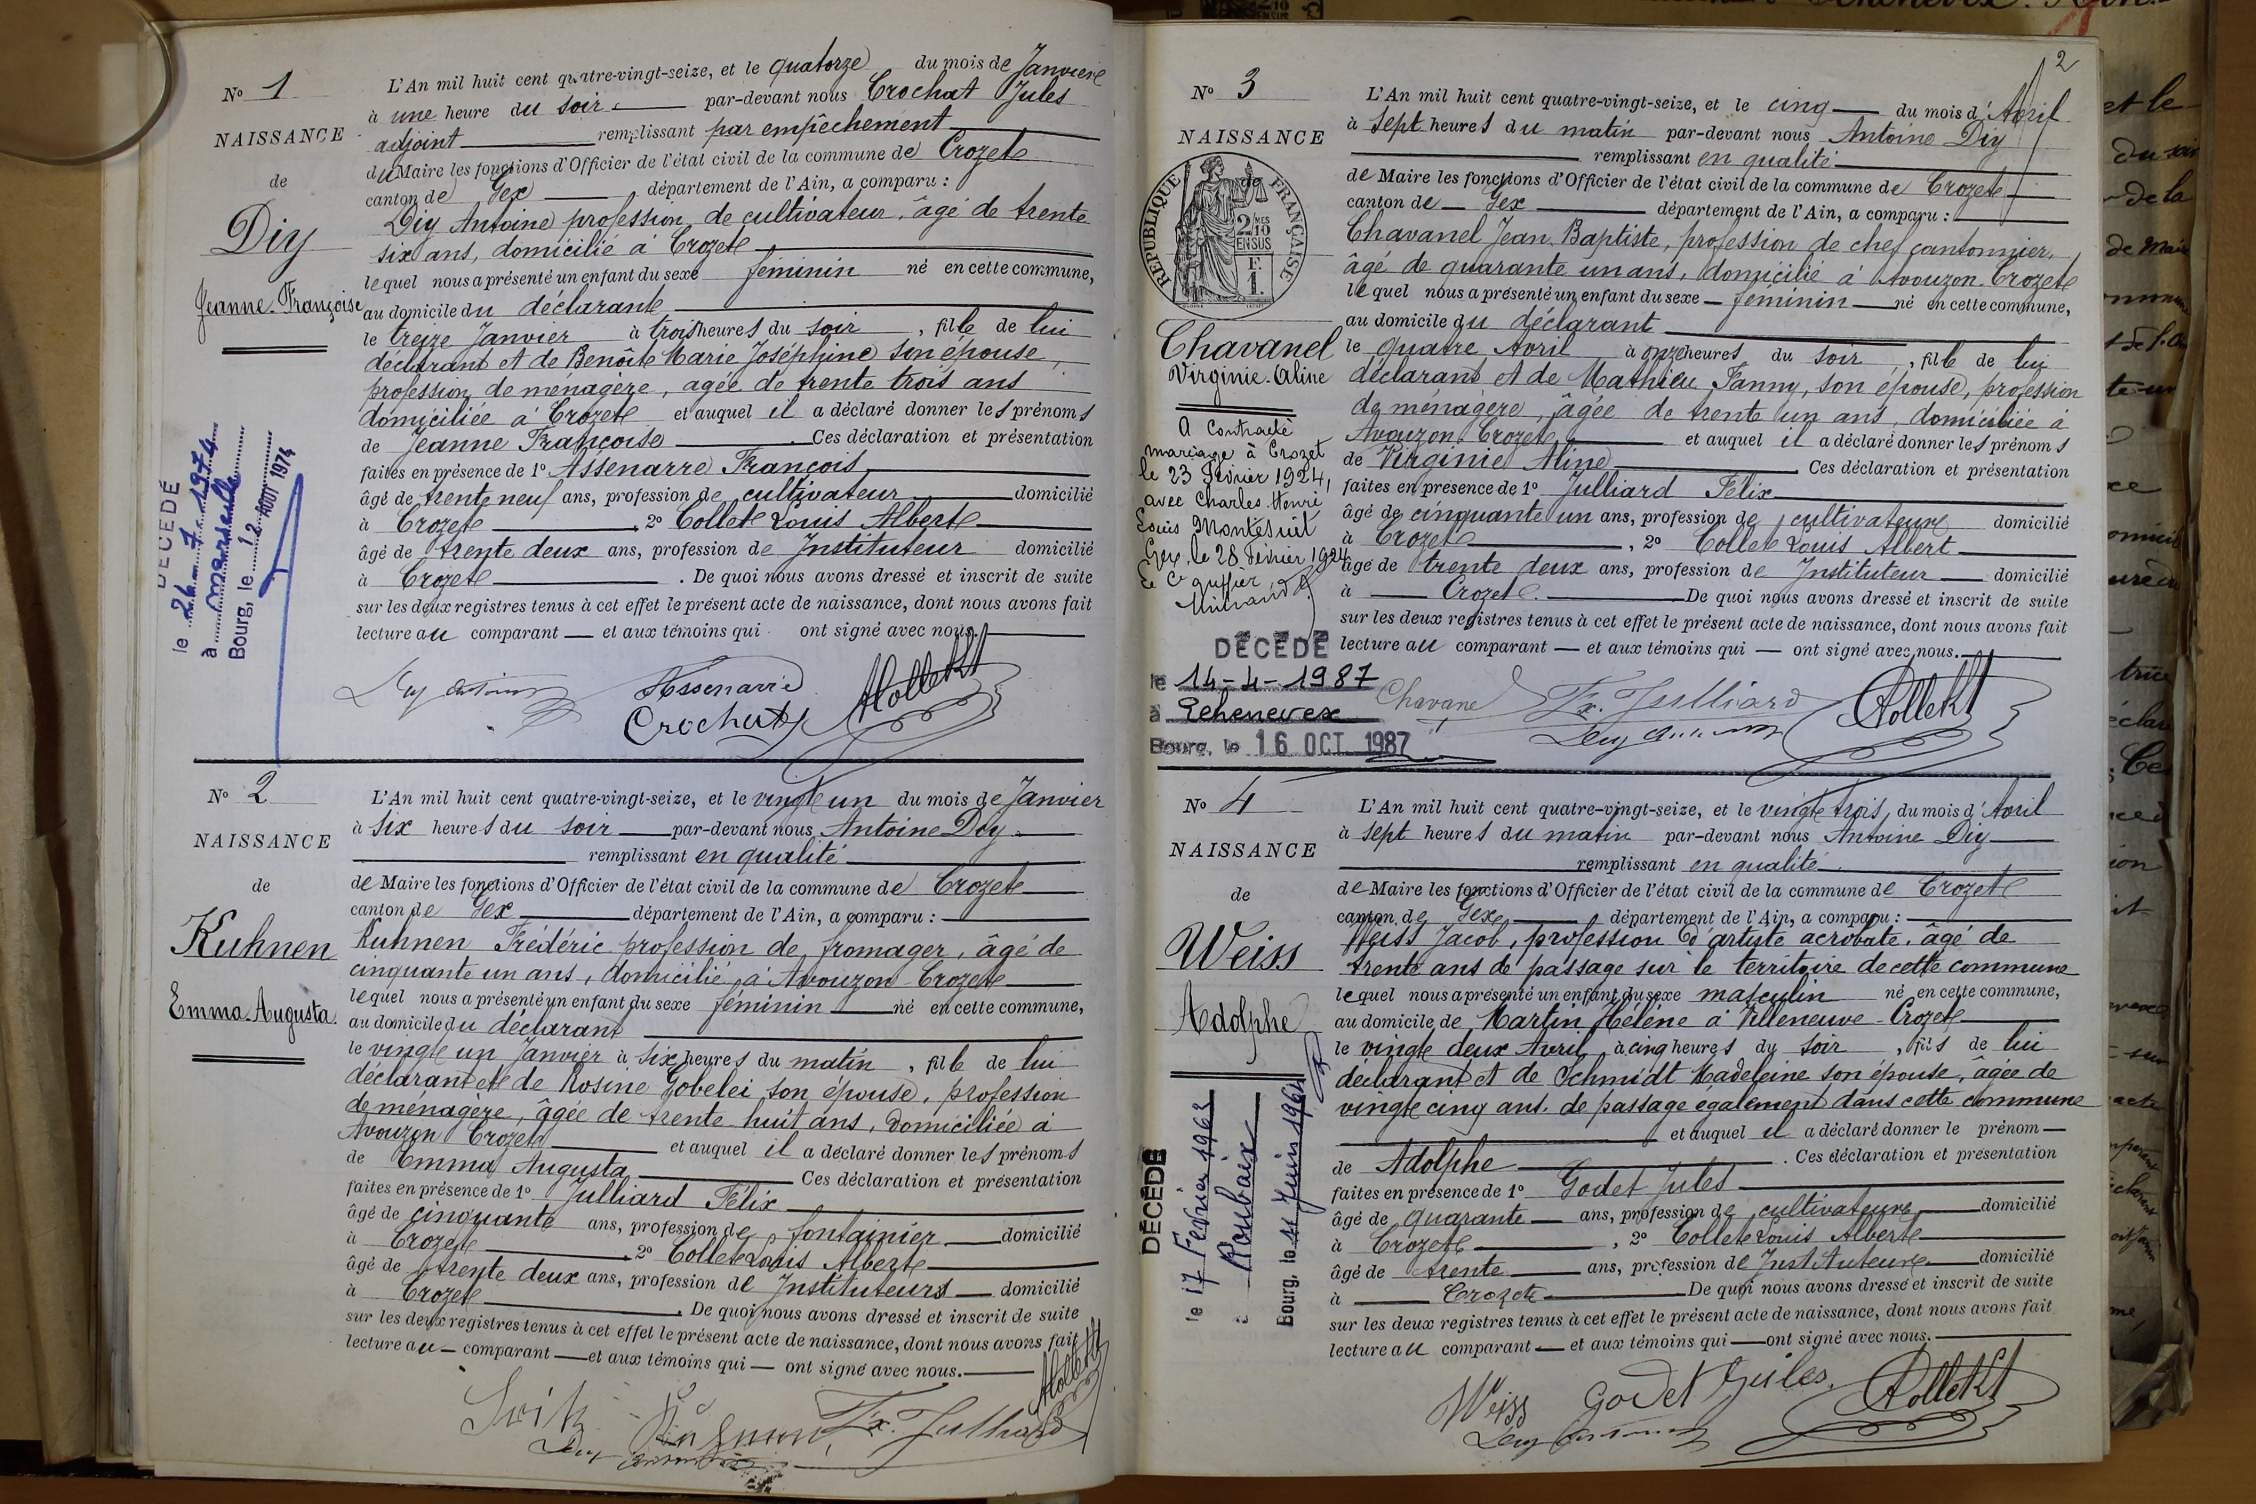 No 1
NAISSANCE
de
Diy
Jeanne-Françoise
DÉCÉDÉ
le 26-7-1974
à marseille
Bourg, le 12 AOUT 1974
L'An mil huit cent quatre-vingt-seize, et le quatorze du mois de Janvier
à une heure du soir par-devant nous Crochat Jules
adjoint remplissant par empêchement
du Maire les fonctions d'Officier de l'état civil de la commune de Crozet
canton de Gex département de l'Ain, a comparu :
Diy Antoine profession de cultivateur, âgé de trente
six ans, domicilié à Crozet
lequel nous a présenté un enfant du sexe féminin né en cette commune,
au domicile du déclarant
le treize Janvier à trois heures du soir, fille de lui
déclarant et de Benôit Marie Joséphine son épouse,
profession de ménagère, agée de trente trois ans
domiciliée à Crozet et auquel il a déclaré donner les prénoms
de Jeanne Françoise Ces déclaration et présentation
faites en présence de 1o Assenarre François
âgé de trente neuf ans, profession de cultivateur domicilié
à Crozet, 2o Collet Louis Albert
âgé de trente deux ans, profession de Instituteur domicilié
à Crozet. De quoi nous avons dressé et inscrit de suite
sur les deux registres tenus à cet effet le présent acte de naissance, dont nous avons fait
lecture au comparant et aux témoins qui ont signé avec nous.
Assenarre
Crochat
No 2
NAISSANCE
de
Kuhnen
Emma-Augusta.
L'An mil huit cent quatre-vingt-seize, et le vingt un du mois de Janvier
à six heures du soir par-devant nous Antoine Diy
remplissant en qualité
de Maire les fonctions d'Officier de l'état civil de la commune de Crozet
canton de Gex département de l'Ain, a comparu :
Kuhnen Frédéric profession de fromager, âgé de
cinquante un ans, domicilié à Avouzon-Crozet
lequel nous a présenté un enfant du sexe féminin né en cette commune,
au domicile du déclarant
le vingt un Janvier à six heures du matin, fille de lui
déclarant et de Rosine Gobelei son épouse, profession
de ménagère, âgée de trente huit ans, domiciliée à
Avouzon Crozet et auquel il a déclaré donner les prénoms
de Emma Augusta Ces déclaration et présentation
faites en présence de 1o Julliard Félix
âgé de cinquante ans, profession de fontainier domicilié
à Crozet, 2o Collet Louis Albert
âgé de trente deux ans, profession de Instituteurs domicilié
à Crozet. De quoi nous avons dressé et inscrit de suite
sur les deux registres tenus à cet effet le présent acte de naissance, dont nous avons fait
lecture au comparant et aux témoins qui ont signé avec nous.
Fx. Julliard
2
No 3
NAISSANCE
de
RÉPUBLIQUE FRANÇAISE
2 MES
10
EN SUS
F.
1.
Chavanel
Virginie-Aline
A contracté
mariage à Crozet
le 23 Février 1924,
avec Charles-Henri
Louis Montésuit
Gex, le 28 Février 1924
Le Cs greffier
DÉCÉDÉ
le 14-4-1987
à Echenevex
Bourg, le 16 OCT. 1987
L'An mil huit cent quatre-vingt-seize, et le cinq du mois d'Avril
à sept heures du matin par-devant nous Antoine Diy
remplissant en qualité
de Maire les fonctions d'Officier de l'état civil de la commune de Crozet
canton de Gex département de l'Ain, a comparu :
Chavanel Jean Baptiste, profession de chef cantonnier,
âgé de quarante un ans, domicilié à Avouzon-Crozet
lequel nous a présenté un enfant du sexe féminin né en cette commune,
au domicile du déclarant
le quatre Avril à onze heures du soir, fille de lui
déclarant et de Mathieu Fanny, son épouse, profession
de ménagère, âgée de trente un ans, domiciliée à
Avouzon. Crozet et auquel il a déclaré donner les prénoms
de Virginie Aline Ces déclaration et présentation
faites en présence de 1o Julliard Félix
âgé de cinquante un ans, profession de cultivateur domicilié
à Crozet, 2o Collet Louis Albert
âgé de trente deux ans, profession de Instituteur domicilié
à Crozet. De quoi nous avons dressé et inscrit de suite
sur les deux registres tenus à cet effet le présent acte de naissance, dont nous avons fait
lecture au comparant et aux témoins qui ont signé avec nous.
Chavanel Fx. Julliard
No 4
NAISSANCE
de
Weiss
Adolphe
DÉCÉDÉ
le 17 Fevrier 1963
à Roubaix
Bourg, le 11 Juin 1964
L'An mil huit cent quatre-vingt-seize, et le vingt trois du mois d'Avril
à sept heures du matin par-devant nous Antoine Diy
remplissant en qualité
de Maire les fonctions d'Officier de l'état civil de la commune de Crozet
canton de Gex département de l'Ain, a comparu :
Weiss Jacob, profession d'artiste acrobate, âgé de
trente ans de passage sur le territoire de cette commune
lequel nous a présenté un enfant du sexe masculin né en cette commune,
au domicile de Martin Hélène à Villeneuve-Crozet
le vingt deux Avril à cinq heures du soir, fils de lui
déclarant et de Schmidt Madeleine son épouse, âgée de
vingt cinq ans, de passage également dans cette commune
et auquel il a déclaré donner le prénom
de Adolphe. Ces déclaration et présentation
faites en présence de 1o Godet Jules
âgé de quarante ans, profession de cultivateur domicilié
à Crozet, 2o Collet Louis Albert
âgé de trente ans, profession de Instituteur domicilié
à Crozet De quoi nous avons dressé et inscrit de suite
sur les deux registres tenus à cet effet le présent acte de naissance, dont nous avons fait
lecture au comparant et aux témoins qui ont signé avec nous.
Weiss Godet Jules.